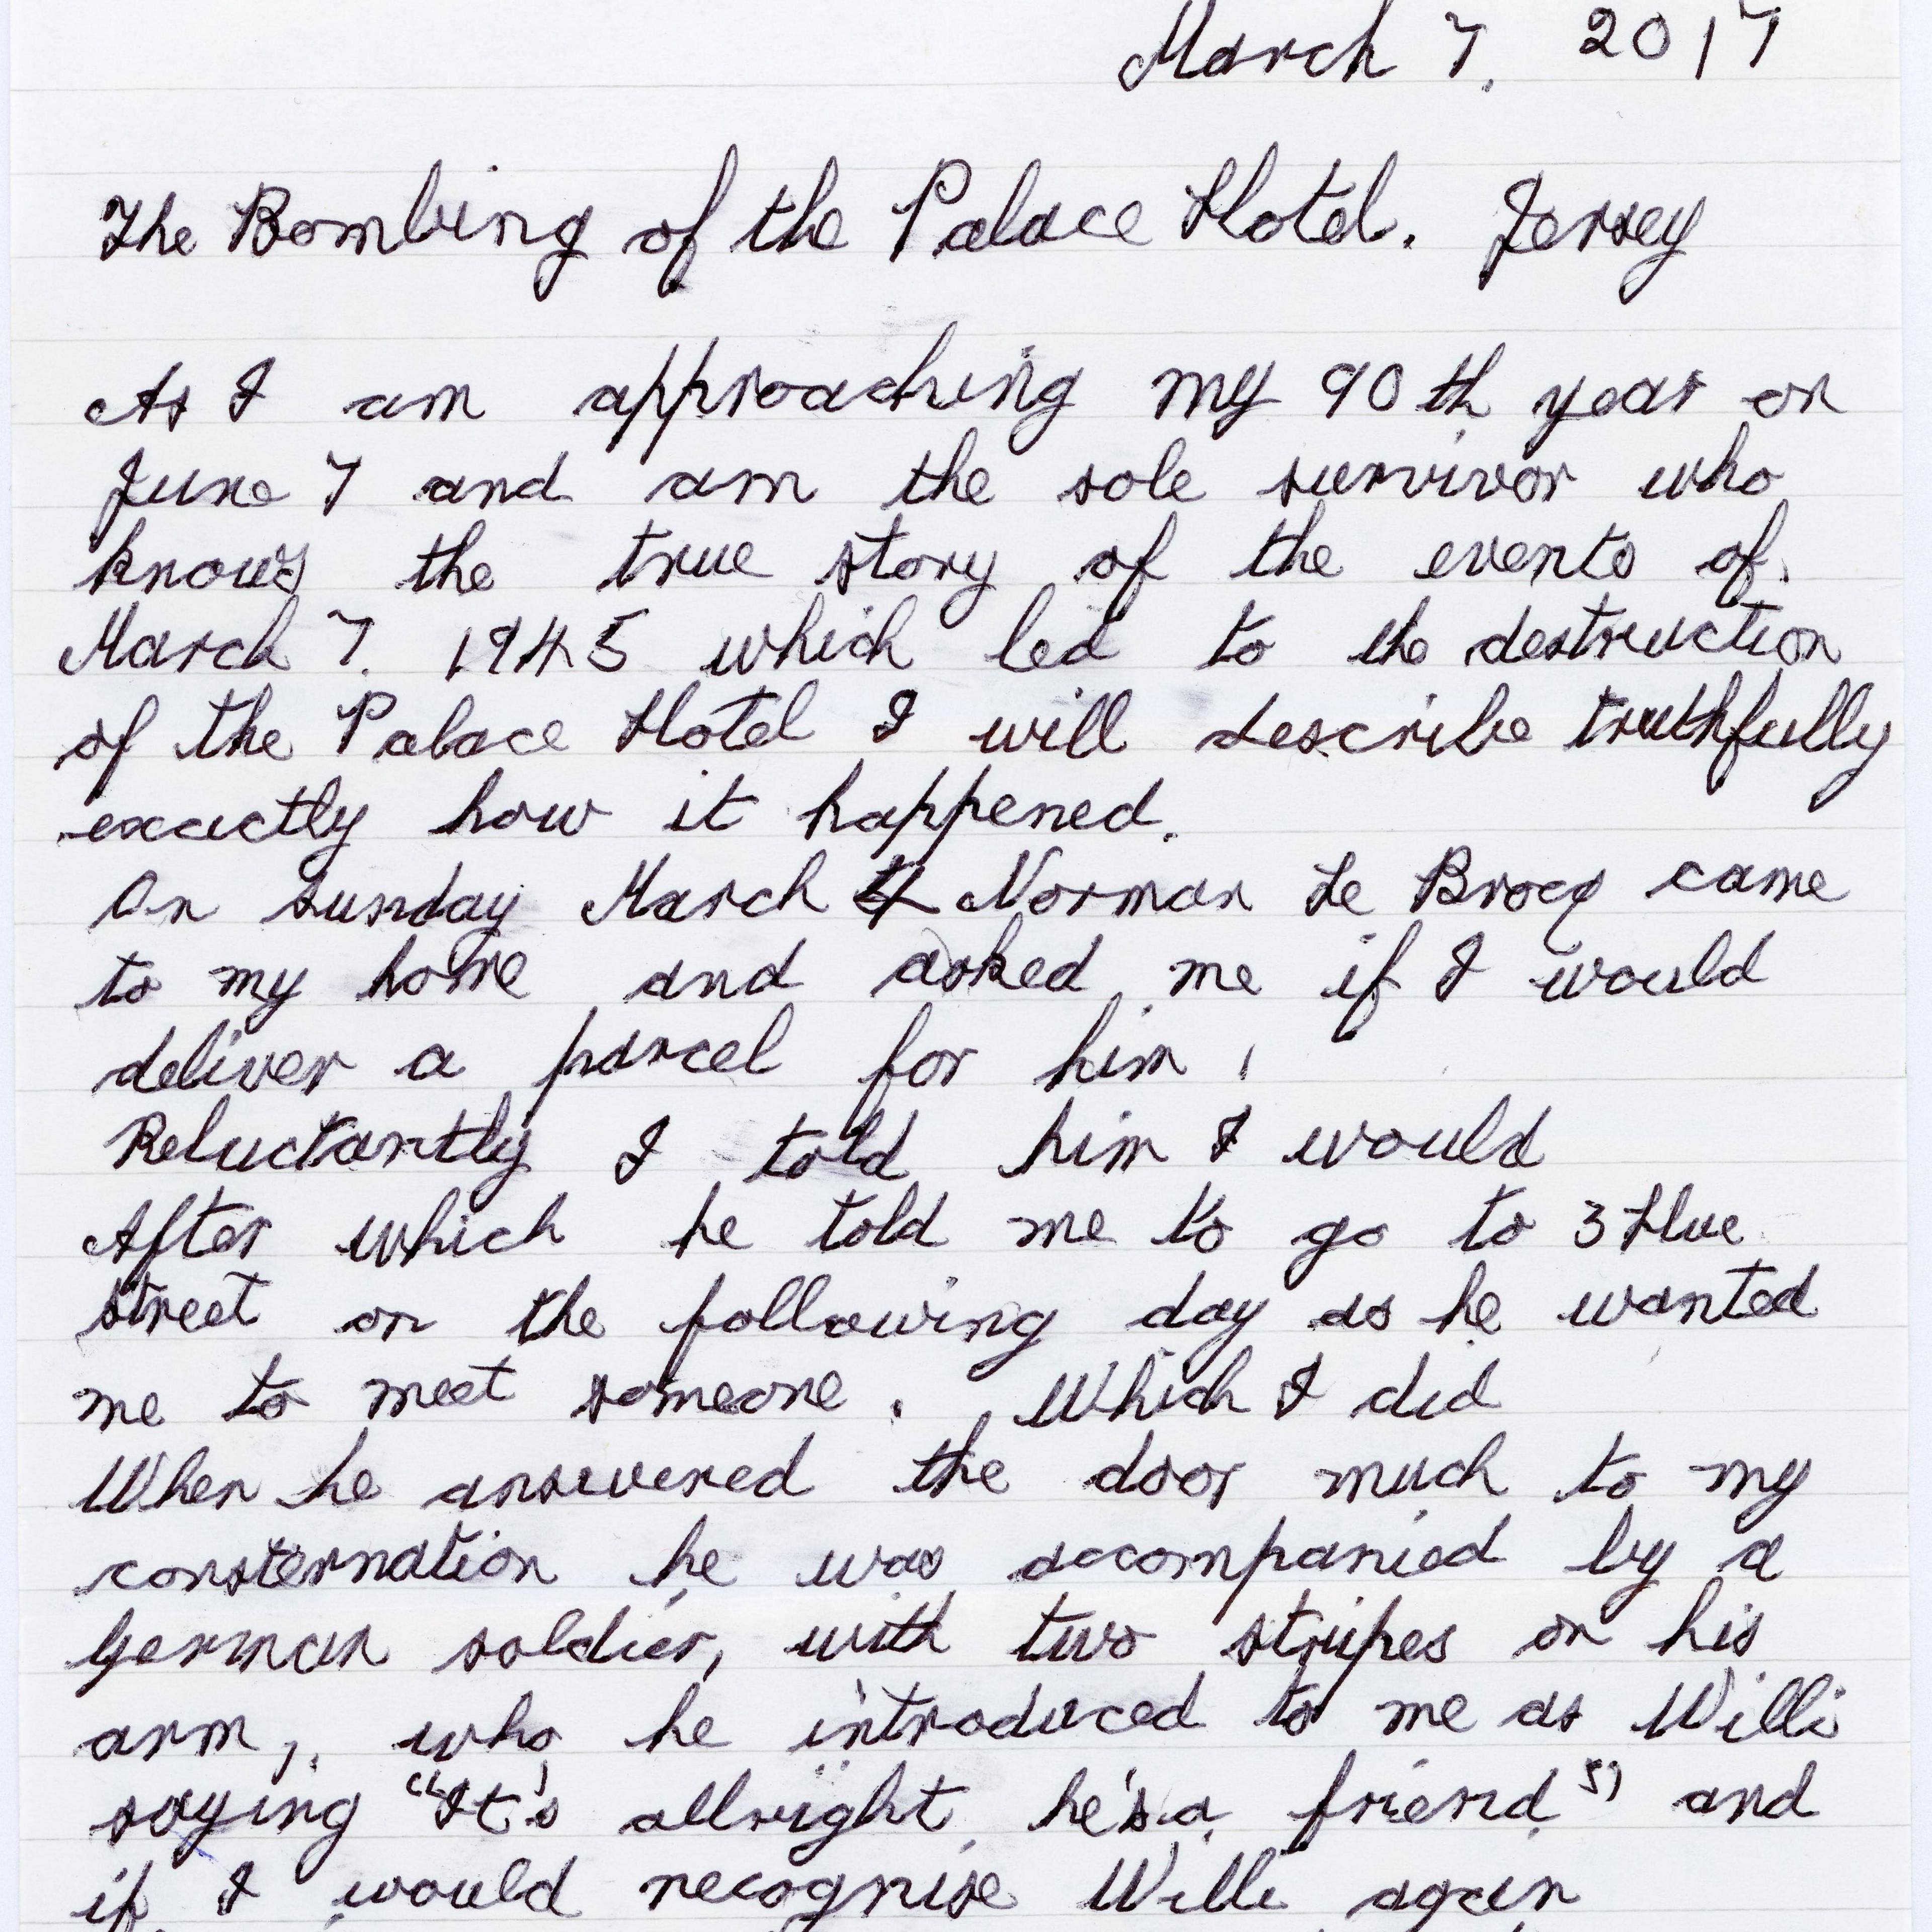 March 7. 2017
The Bombing of the Palace Hotel. Jersey
As I am approaching my 90th year on
June 7 and am the sole survivor who
knows the true story of the events of
March 7. 1945 which led to the destruction
of the Palace Hotel I will describe truthfully
exactly how it happened.
On Sunday March 4 Norman Le Brocq came
to my home and asked me if I would
deliver a parcel for him.
Reluctantly I told him I would
After which he told me to go to 3 Hue
Street on the following day as he wanted
me to meet someone. Which I did
When he answered the door much to my
consternation he was accompanied by a
German soldier, with two stripes on his
arm, who he introduced to me as Willi
saying "It's allright he's a friend" and
if I would recognise Willi again